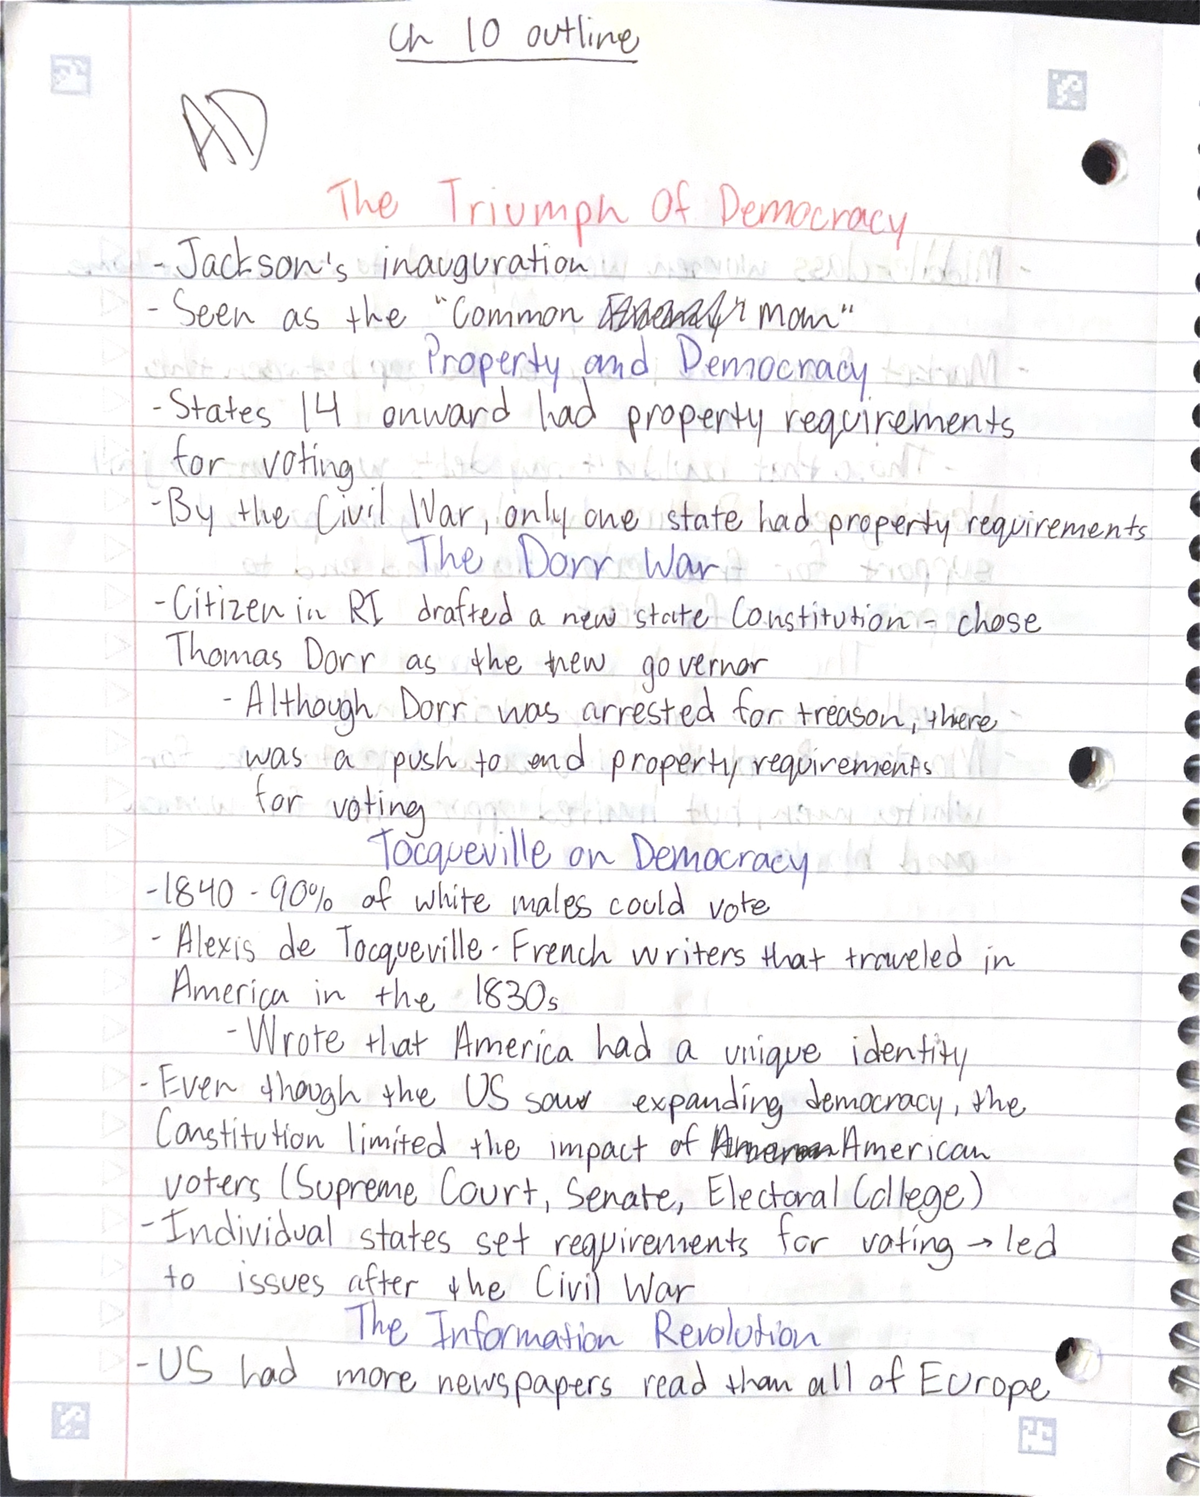 Ch 10 outline
AD
The Triumph Of Democracy
- Jackson's inauguration
- Seen as the "Common man"
Property and Democracy
- States 14 onward had property requirements
for voting
- By the Civil War, only one state had property requirements
The Dorr War
- Citizen in RI drafted a new state Constitution - chose
Thomas Dorr as the new governor
- Although Dorr was arrested for treason, there
was a push to end property requirements
for voting
Tocqueville on Democracy
- 1840 - 90% of white males could vote
- Alexis de Tocqueville - French writers that traveled in
America in the 1830s
- Wrote that America had a unique identity
- Even though the US saw expanding democracy, the
Constitution limited the impact of American
voters (Supreme Court, Senate, Electoral College)
- Individual states set requirements for voting → led
to issues after the Civil War
The Information Revolution
- US had more newspapers read than all of Europe